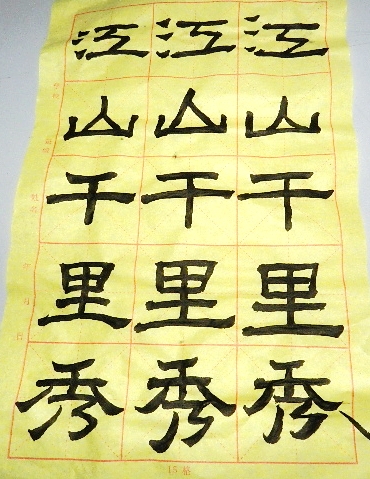 江江江
山山山
千千千
里里里
秀秀秀
15格